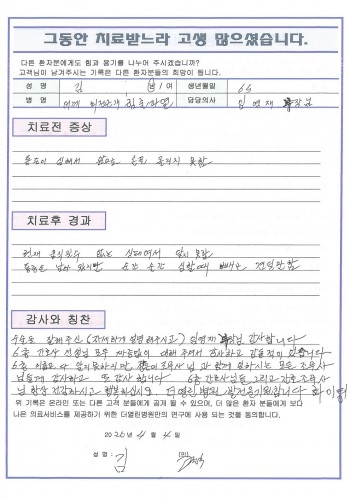 그동안 치료받느라 고생 많으셨습니다.
다른 환자분에게도 힘과 용기를 나누어 주시겠습니까?
고객님이 남겨주시는 기록은 다른 환자분들의 희망이 됩니다.
성 명 김 남 / 여 생년월일 65
병 명 어깨 회전근개 힘줄파열 담당의사 임 재 부장님
치료전 증상
통증이 심해서 잠을 못 들지 못함
치료후 경과
현재 움직일수 없는 상태여서 알지 못함
통증은 남아 있지만 순간 순간 심할때 빼고는 견딜만함
감사와 칭찬
수술도 잘해주신 (자세하게 설명해주시고) 임 재 부장님 감사합니다
6층 간호사 선생님 모두 싸름없이 대해 주셔서 감사하고 감동적이 있습니다
6층 이름도 다 알지 못하지만, 조무사님과 함께 일하시는 모든 조무사
님들께 감사하고 또 감사합니다 6층 간호사님들 그리고 간호조무사
님 항상 건강하시고 행복하십시오 더열린병원 발전을 기원합니다 화이팅
위 기록은 온라인 또는 다른 고객 분들에게 공개 될 수 있으며, 더 많은 환자 분들에게 보다
나은 의료서비스를 제공하기 위한 더열린병원만의 연구에 사용 되는 것을 동의합니다.
2026 년 4 월 4 일
성 명 : 김 (인)